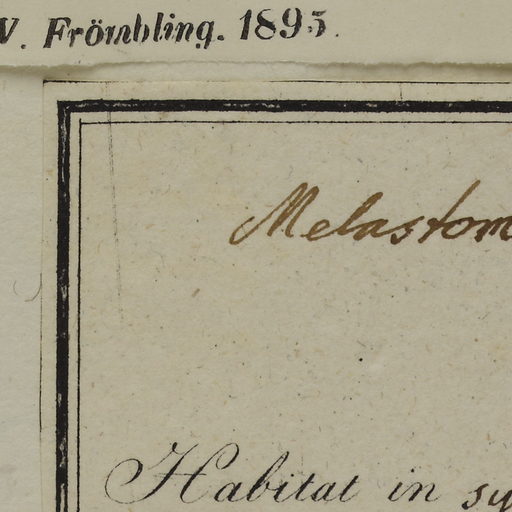 W. Frömbling. 1895.
Melastom
Habitat in sy